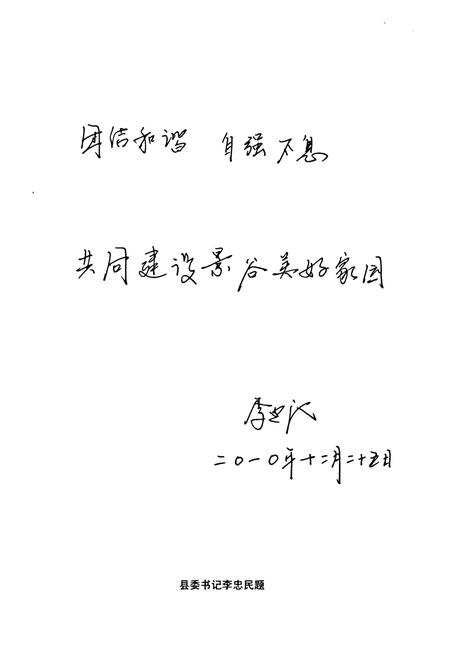 团结和谐 自强不息
共同建设景谷美好家园
李忠民
二〇一〇年十二月二十五日
县委书记李忠民题